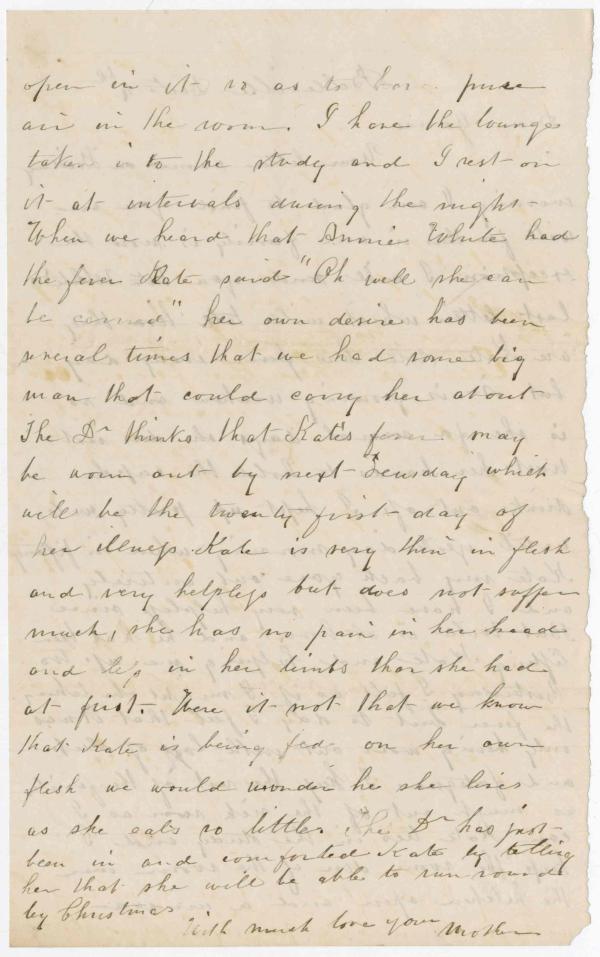 open in it so as to have pure
air in the room. I have the lounge
taken into the study and I rest on
it at intervals during the night-
When we heard that Annie White had
the fever Kate said "Oh well she can
be carried" her own desire has been
several times that we had some big
man that could carry her about
The Dr thinks that Kate's fever may
be worn out by next Teusday which
will be the twenty first day of
her illness. Kate is very thin in flesh
and very helpless but does not suffer
much, she has no pain in her head
and less in her limbs than she had
at first. Were it not that we know
that Kate is being fed on her own
flesh we would wonder how she lives
as she eats so little. The Dr has just
been in and comforted Kate by telling
her that she will be able to run round
by Christmas
With much love your Mother